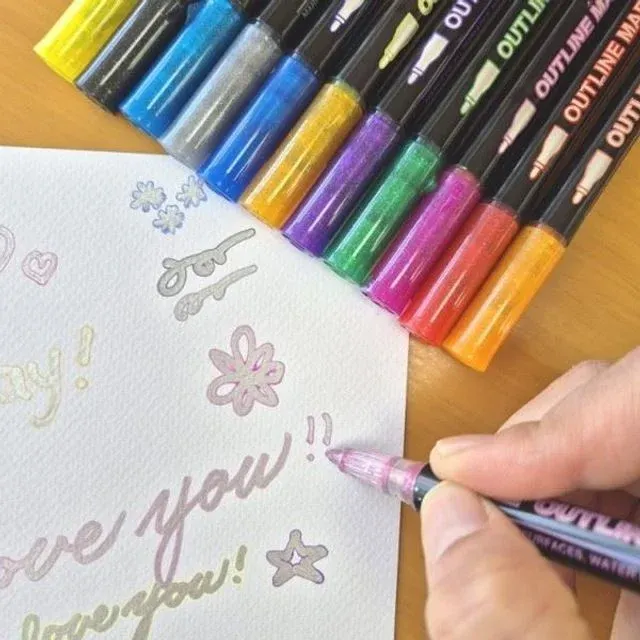 OU
OUTLINE
OUTLINE MA
OUTLINE MA
OUTLINE
ay!
ove you!!
love you!
OUTLIN
SURFACES WATER